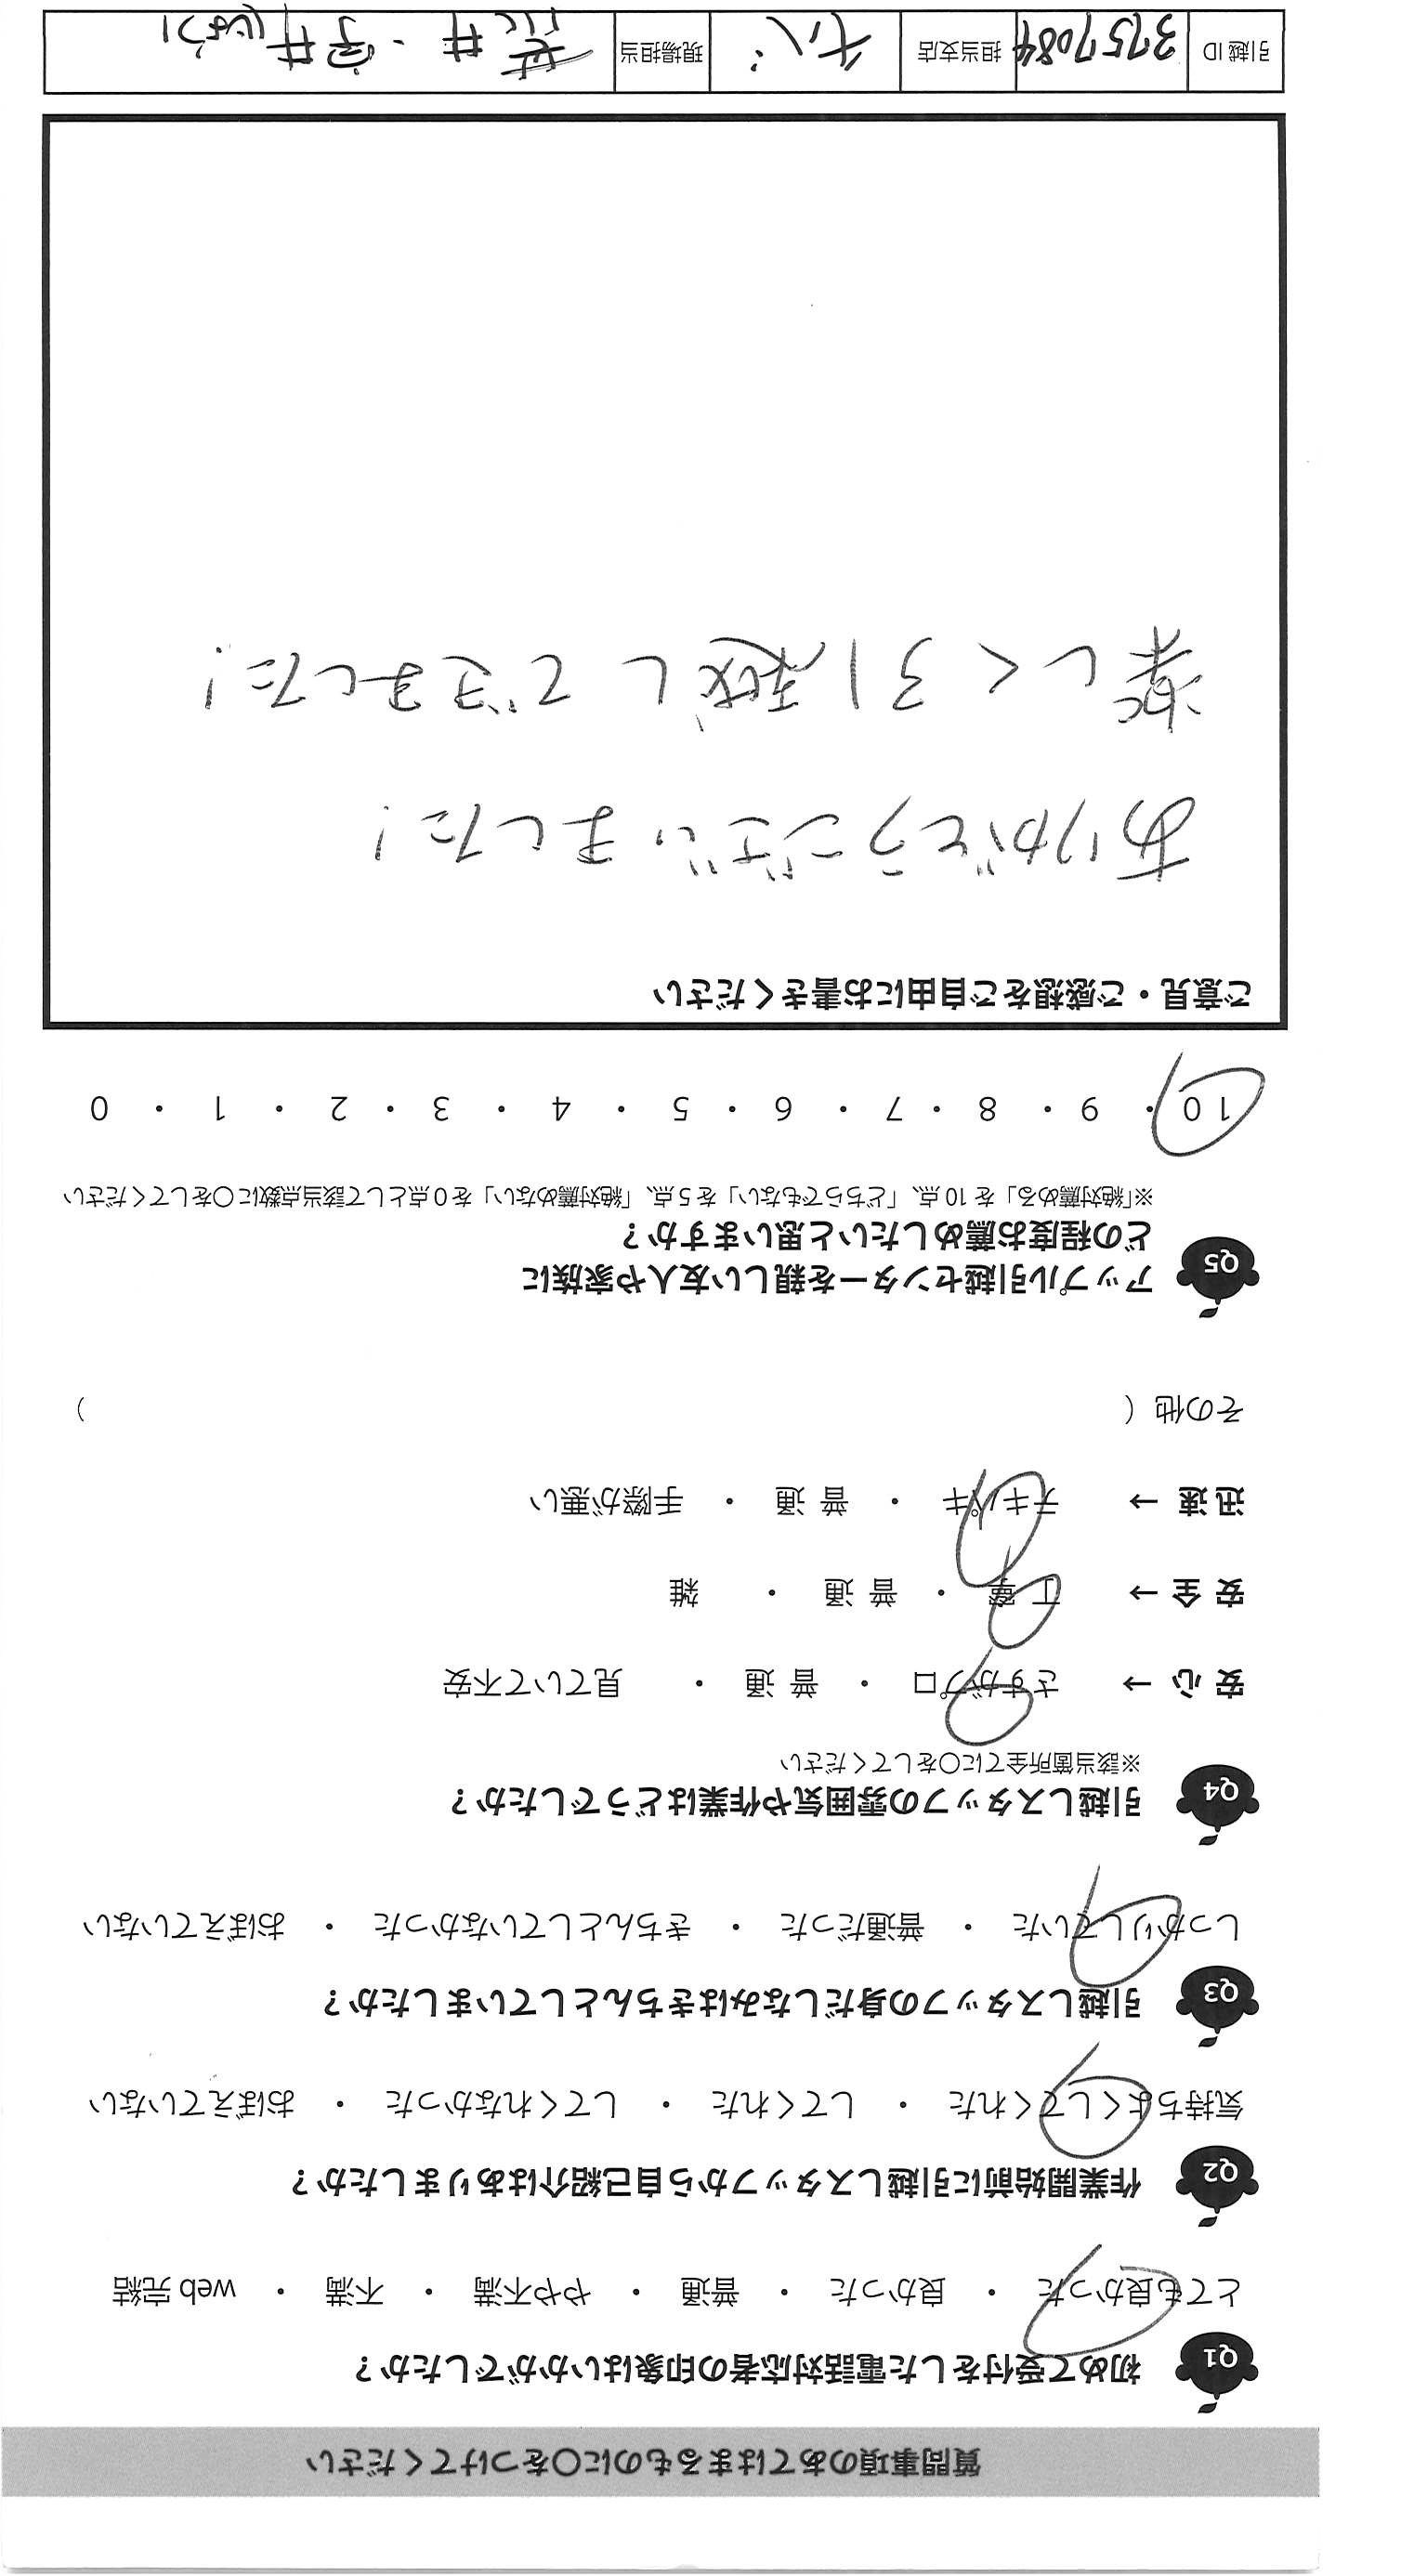 質問事項のあてはまるものに〇をつけてください
Q1 初めて受付をした電話対応者の印象はいかがでしたか？
とても良かった ・ 良かった ・ 普通 ・ やや不満 ・ 不満 ・ web 完結
Q2 作業開始前に引越しスタッフから自己紹介はありましたか？
気持ちよくしてくれた ・ してくれた ・ してくれなかった ・ おぼえていない
Q3 引越しスタッフの身だしなみはきちんとしていましたか？
しっかりしていた ・ 普通だった ・ きちんとしていなかった ・ おぼえていない
Q4 引越しスタッフの雰囲気や作業はどうでしたか？
※該当箇所全てに〇をしてください
安 心 → さすがプロ ・ 普 通 ・ 見ていて不安
安 全 → 丁 寧 ・ 普 通 ・ 雑
迅 速 → テキパキ ・ 普 通 ・ 手際が悪い
その他（ ）
Q5 アップル引越センターを親しい友人や家族に
どの程度お薦めしたいと思いますか？
※「絶対薦める」を 10 点、「どちらでもない」を 5 点、「絶対薦めない」を 0 点として該当点数に〇をしてください
10 ・ 9 ・ 8 ・ 7 ・ 6 ・ 5 ・ 4 ・ 3 ・ 2 ・ 1 ・ 0
ご意見・ご感想をご自由にお書きください
ありがとうございました！
楽しく引越しできました！
引越 ID 3757084 担当支店 現場担当